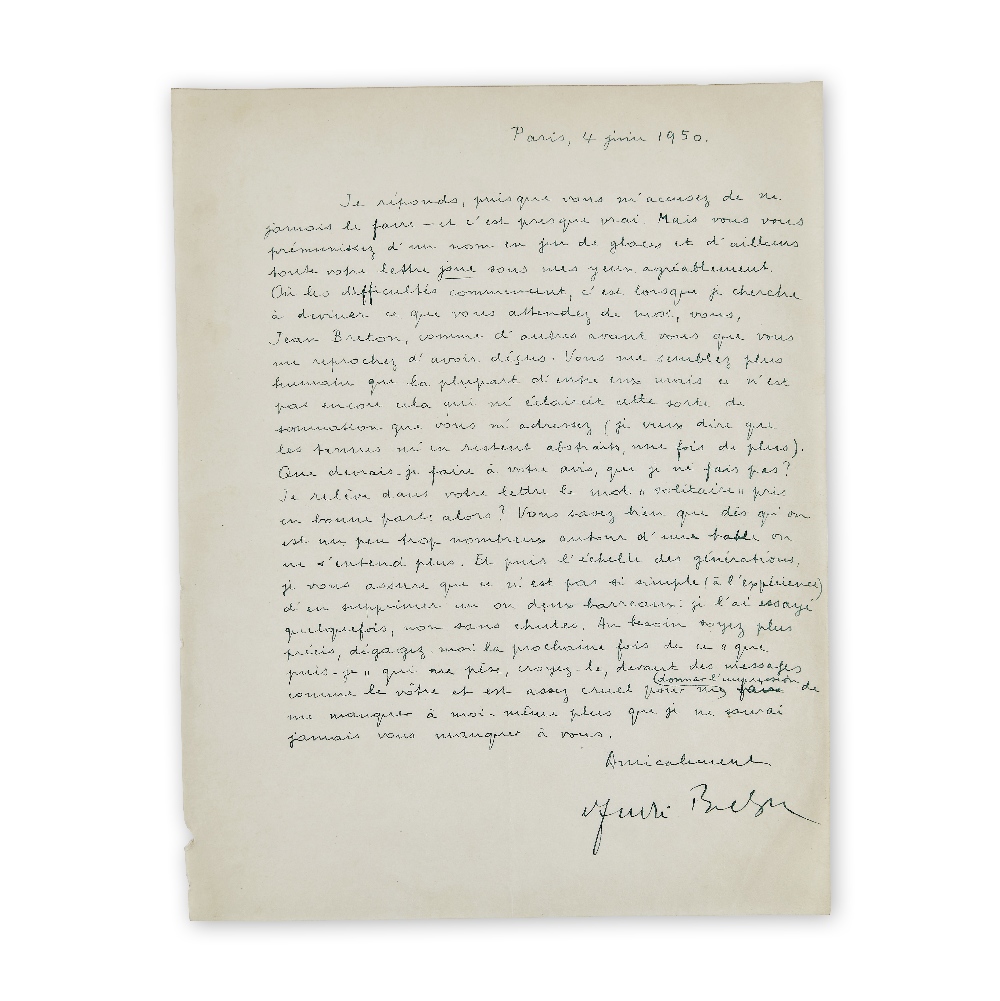 Paris, 4 juin 1950.
Je réponds, puisque vous m'accusez de ne
jamais le faire – et c'est presque vrai. Mais vous vous
prémunissez d'un nom en jeu de glaces et d'ailleurs
toute votre lettre joue sous mes yeux agréablement.
Où les difficultés commencent, c'est lorsque je cherche
à deviner ce que vous attendez de moi, vous,
Jean Breton, comme d'autres avant vous que vous
me reprochez d'avoir déçus. Vous me semblez plus
humain que la plupart d'entre eux mais ce n'est
pas encore cela qui m'éclaircit cette sorte de
sommation que vous m'adressez (je veux dire que
les termes m'en restent abstraits, une fois de plus).
Que devrais-je faire à votre avis, que je ne fais pas?
Je relève dans votre lettre le mot "solitaire" pris
en bonne part: alors? Vous savez bien que dès qu'on
est un peu trop nombreux autour d'une table on
ne s'entend plus. Et puis l'échelle des générations,
je vous assure que ce n'est pas si simple (à l'expérience)
d'en supprimer un ou deux barreaux: je l'ai essayé
quelquefois, non sans chutes. Au besoin soyez plus
précis, dégagez-moi la prochaine fois de ce "que
puis-je" qui me pèse, croyez-le, devant des messages
comme le vôtre et est assez cruel pour me donner l'impression de
me manquer à moi-même plus que je ne saurai
jamais vous manquer à vous.
Amicalement
André Breton